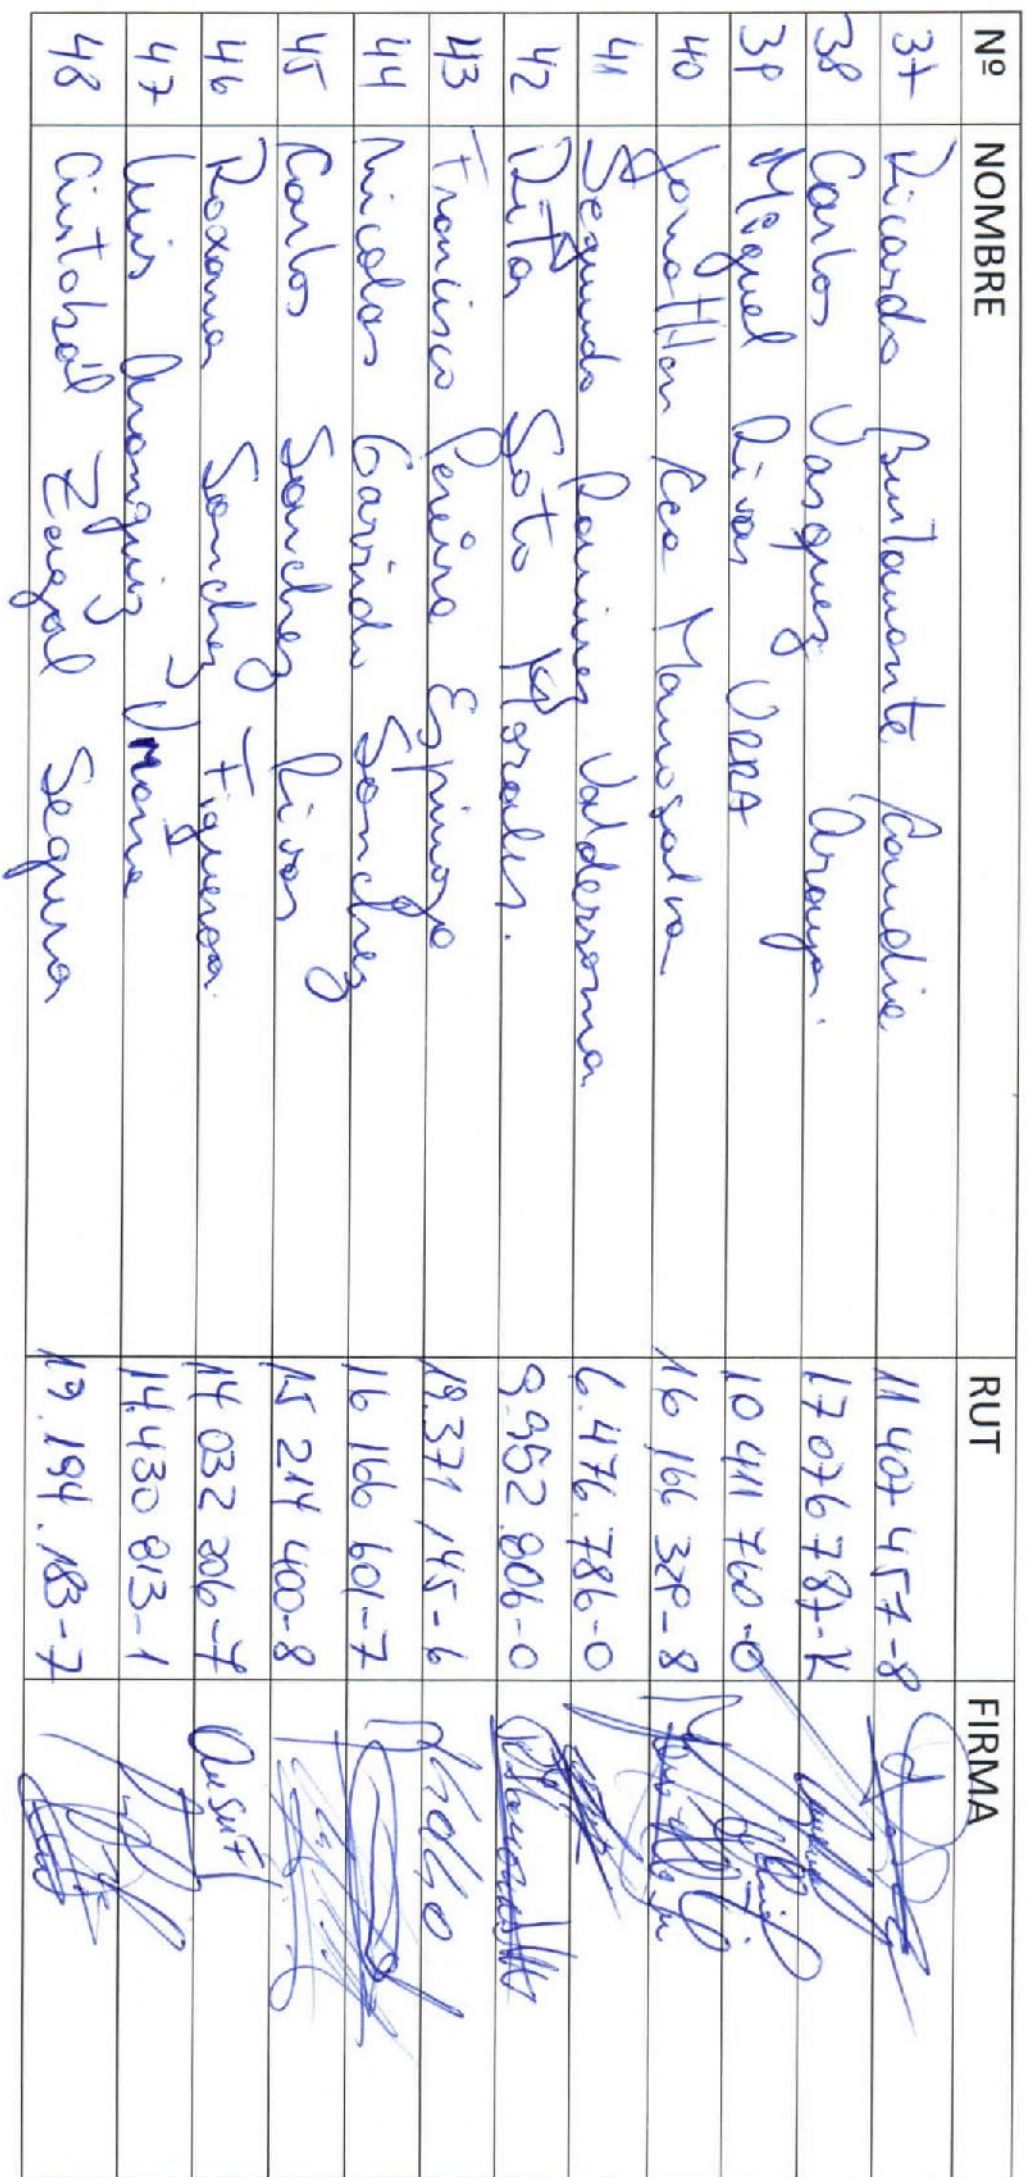 Nº NOMBRE RUT FIRMA
37 Ricardo Bustamante 11 407 457-8
38 Carlos Vasquez Araya. 17 076 787-K
39 Miguel Rivas URRA 10 411 760-0
40 Jonatthan Rea Manosalva 16 166 329-8
41 Segundo Ramirez Valderrama 6.476.786-0
42 Rita Soto Morales. 9.952.806-0
43 Francisco Pereira Espinoza 19.371 145-6
44 Nicolas Garrido Sanchez 16 166 601-7
45 Carlos Sanchez Rivas 15 214 400-8
46 Roxana Sanchez Figueroa. 14 032 806-7
47 Luis Aranguiz 14.430 813-1
48 Cristobál Zagal Segura 19.194.183-7